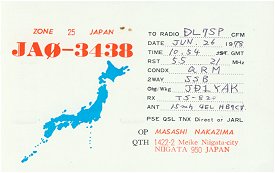 ZONE 25 JAPAN
JAØ-3438
TO RADIO DL7SP CFM
DATE JUN. 26 1978
TIME 10.54 JST GMT
RST 55 21 MHz
CONDX QRM
2WAY SSB
Stg. Wkg JD1YAK
RX TS-820
ANT 15mh 4EL HB9CV
PSE QSL TNX Direct or JARL
OP MASASHI NAKAZIMA
QTH 1422-2 Meike Niigata-city
NIIGATA 950 JAPAN